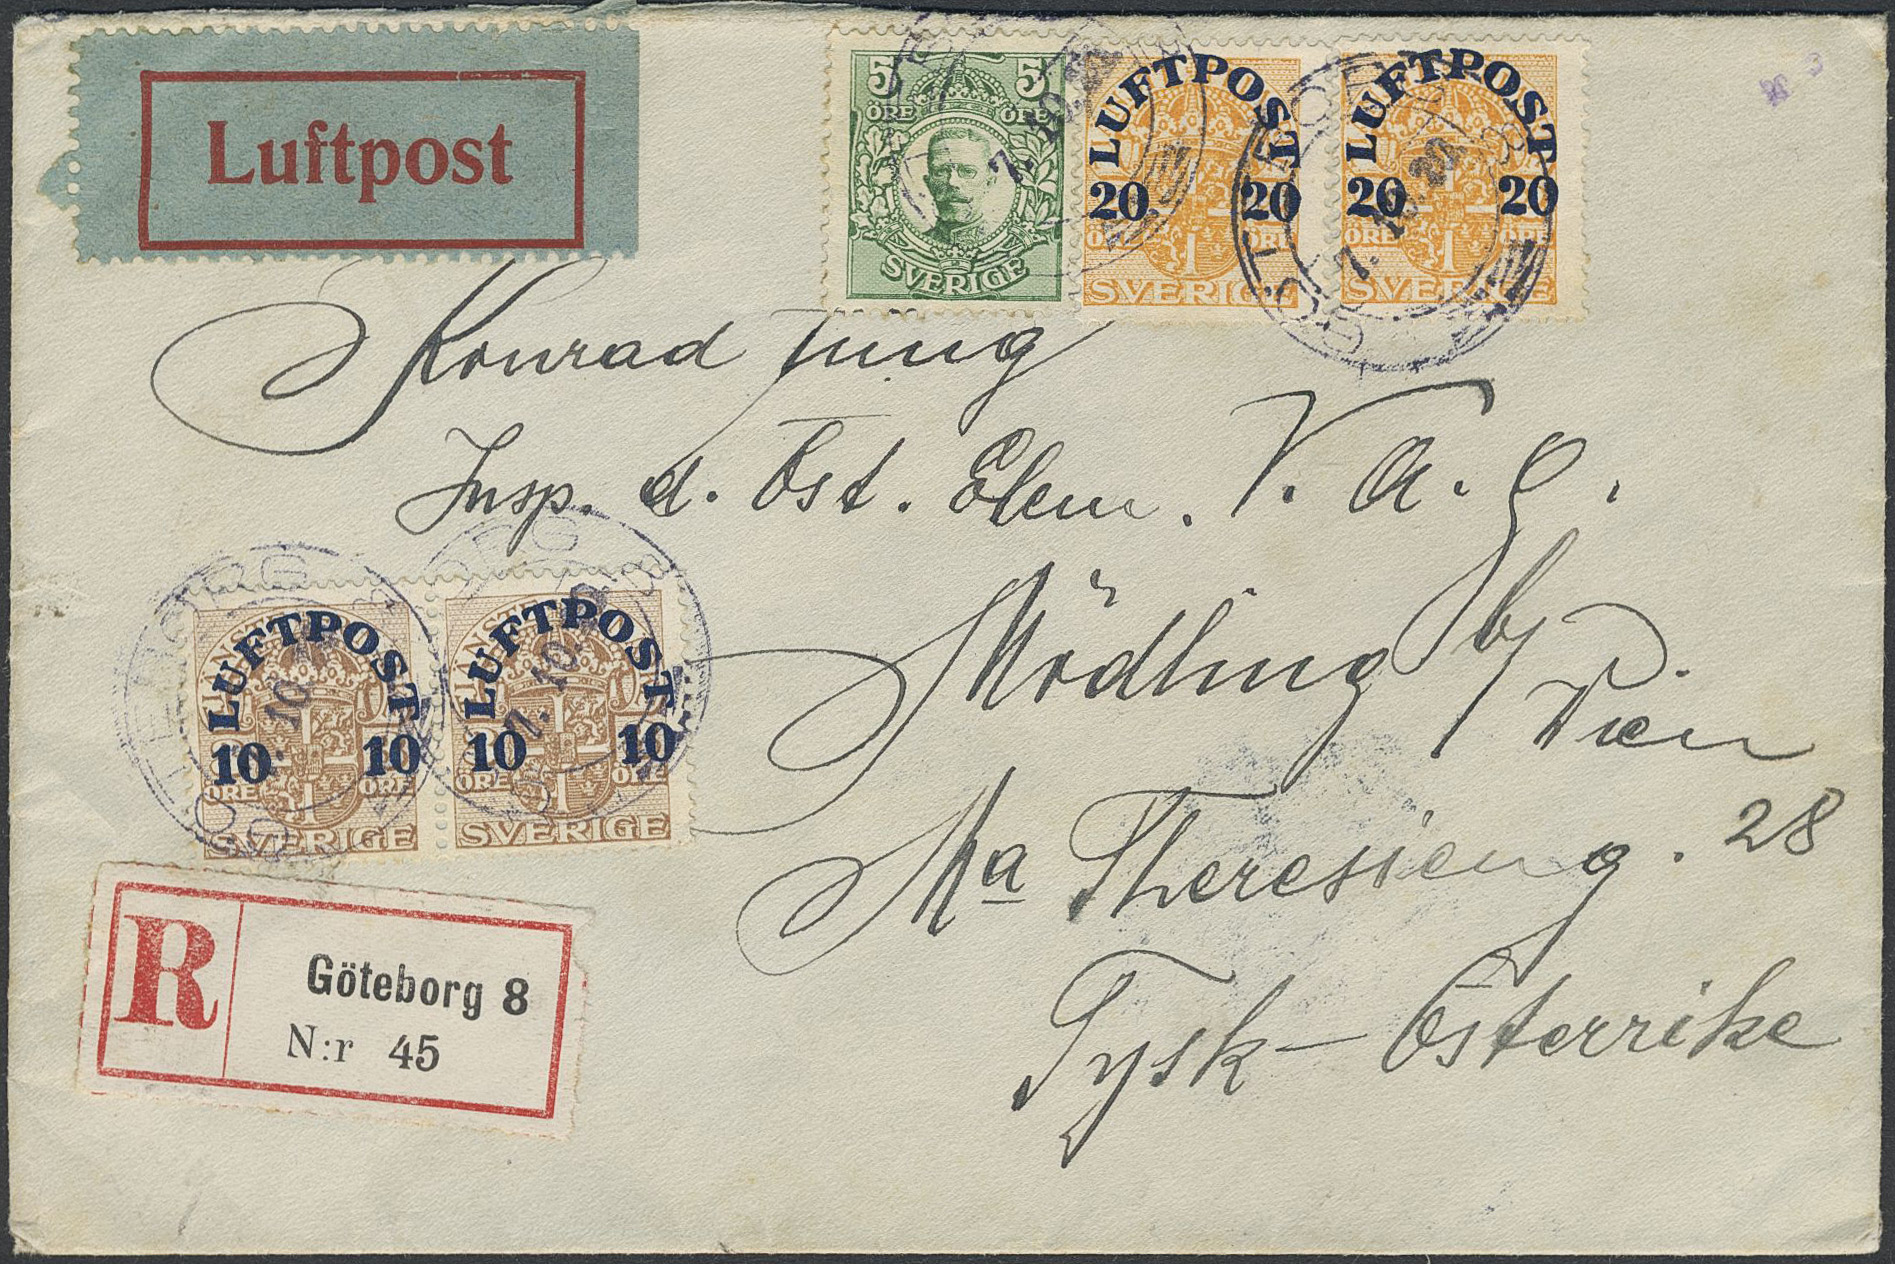 Luftpost
5 5
ÖRE ÖRE
SVERIGE
LUFTPOST
20 20
ÖRE ÖRE
SVERIGE
LUFTPOST
20 20
ÖRE ÖRE
SVERIGE
GÖTEBORG
7.10.20
Konrad Jung
Insp. d. Öst. Elem. V. A. G.
Mödling b/ Wien
Ma Theresieng. 28
Tysk-Österrike
LUFTPOST
10 10
ÖRE ÖRE
SVERIGE
LUFTPOST
10 10
ÖRE ÖRE
SVERIGE
R
Göteborg 8
N:r 45